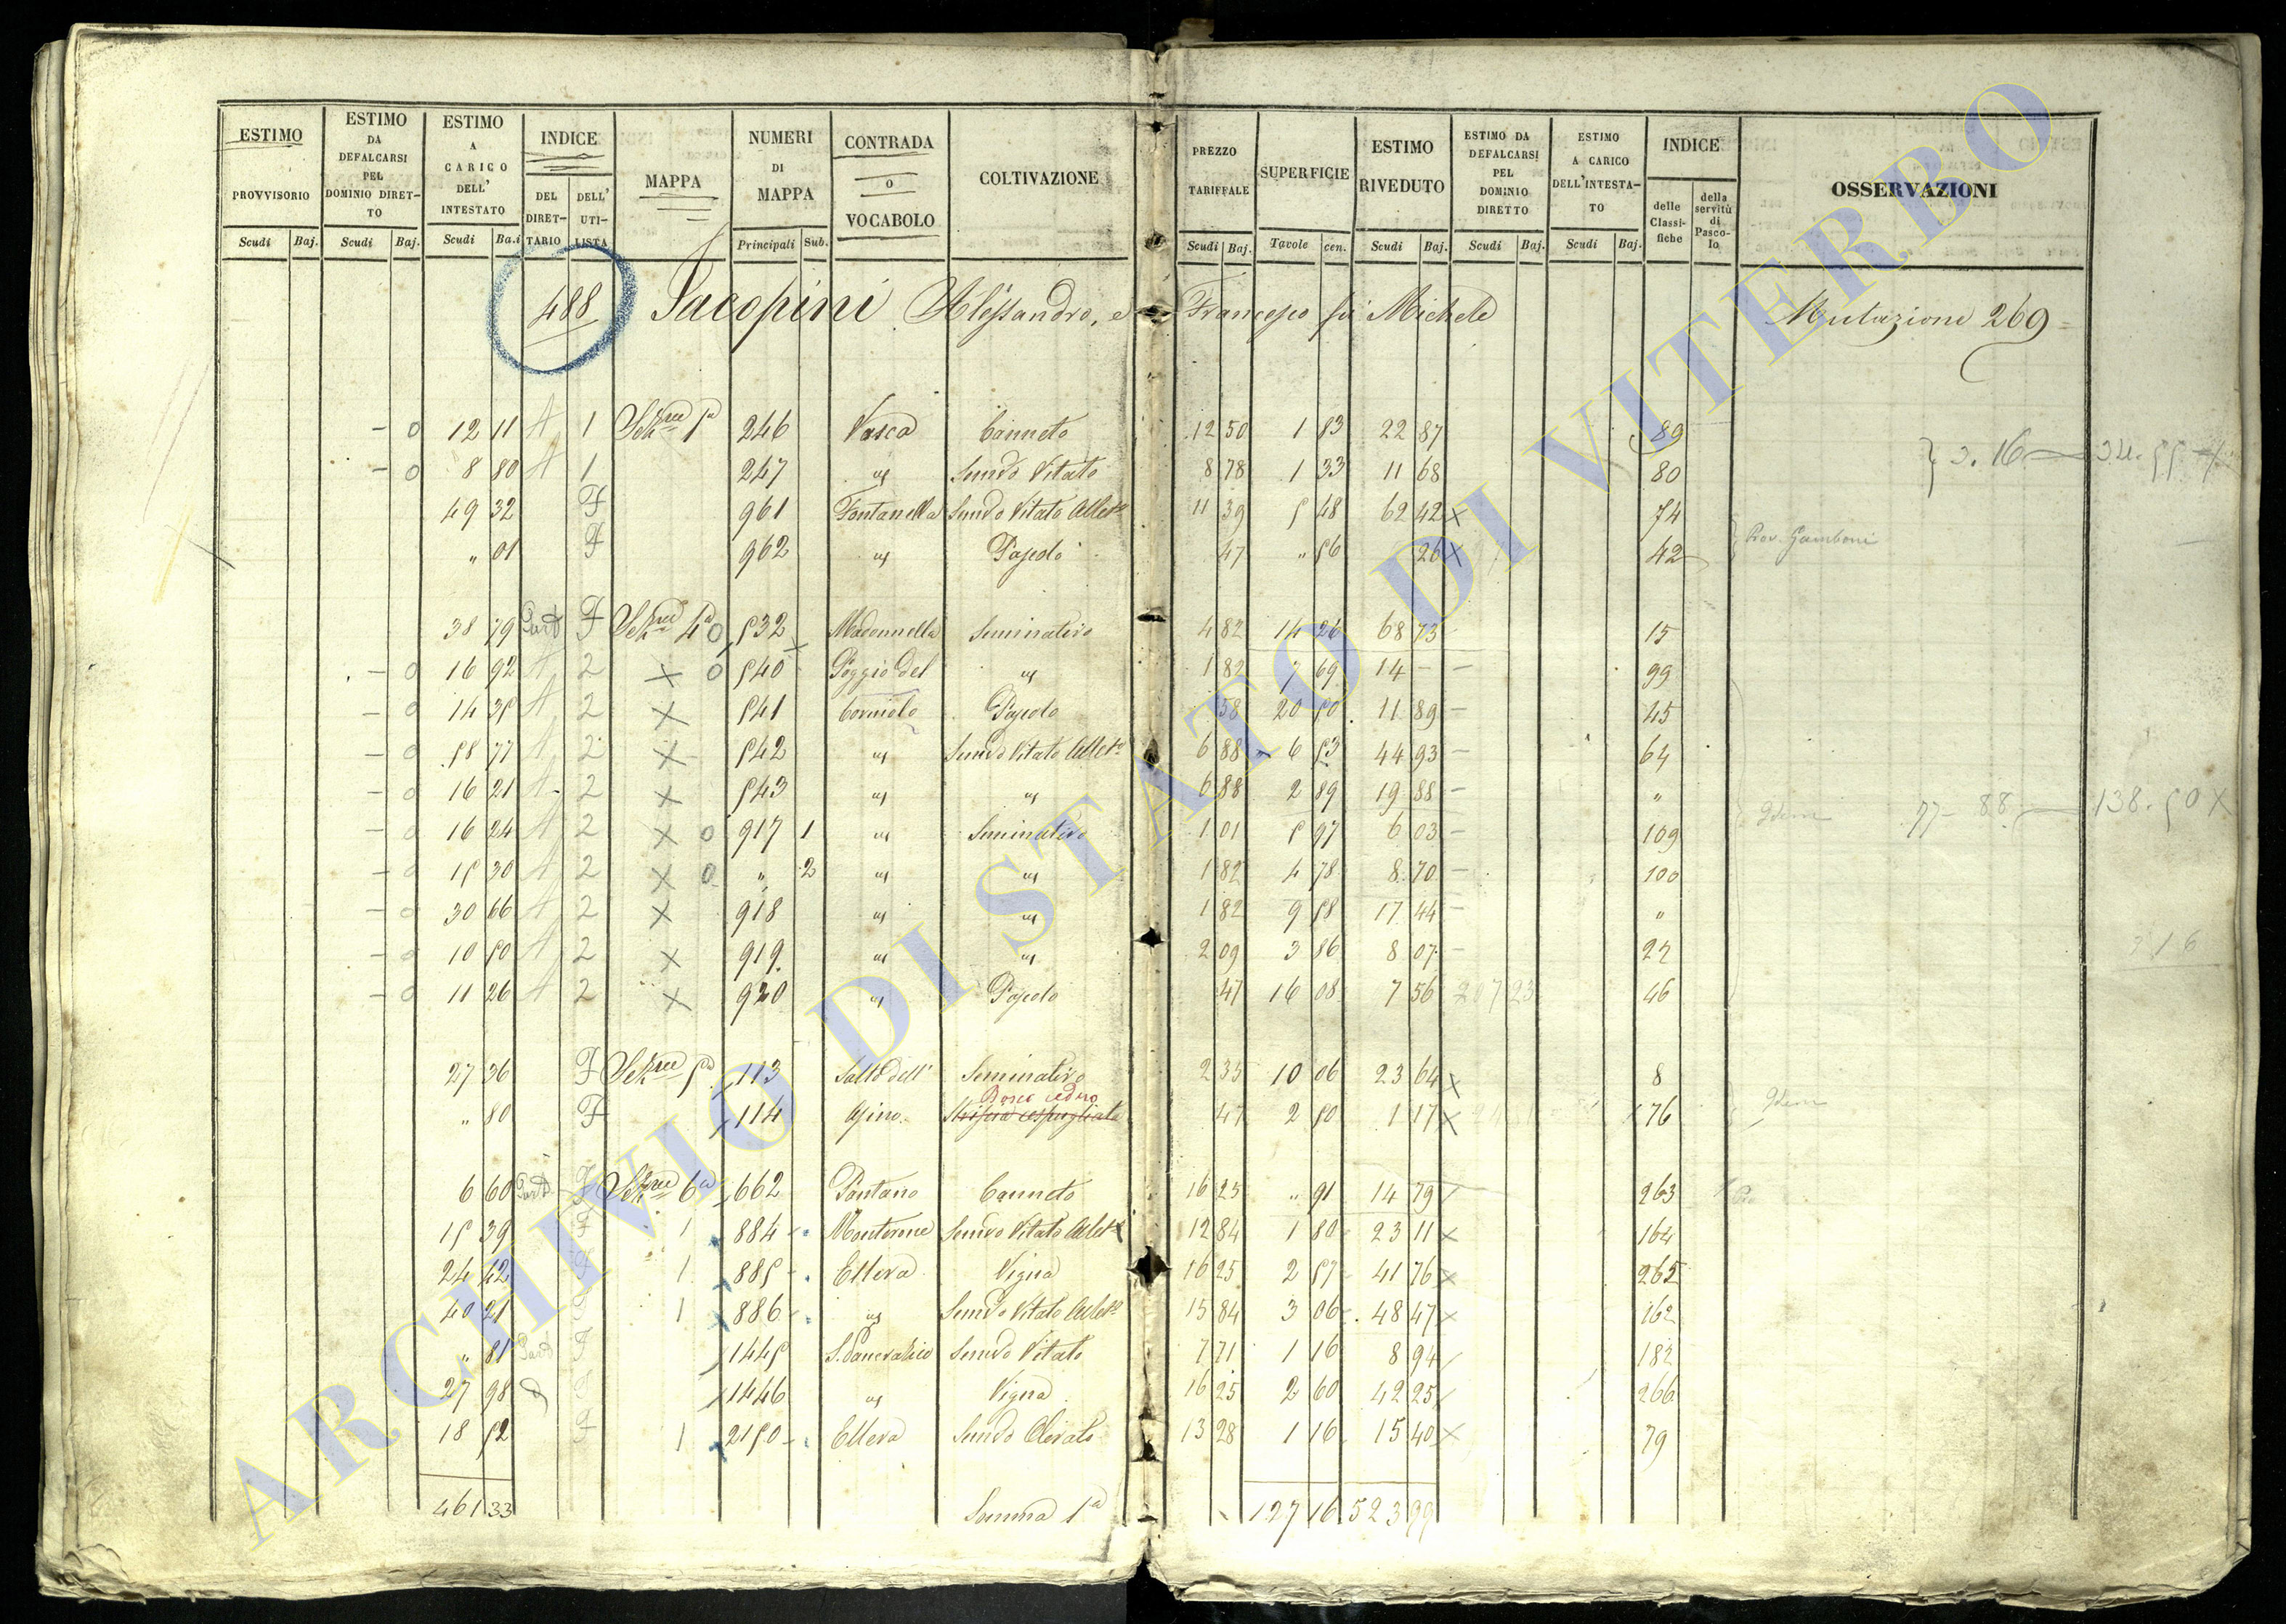 ESTIMO PROVVISORIO Scudi Baj.
ESTIMO DA DEFALCARSI PEL DOMINIO DIRETTO Scudi Baj.
ESTIMO A CARICO DELL' INTESTATO Scudi Ba.i
INDICE DEL DIRETTARIO DELL' UTILISTA
MAPPA
NUMERI DI MAPPA Principali Sub.
CONTRADA O VOCABOLO
COLTIVAZIONE
PREZZO TARIFFALE Scudi Baj.
SUPERFICIE Tavole cen.
ESTIMO RIVEDUTO Scudi Baj.
ESTIMO DA DEFALCARSI PEL DOMINIO DIRETTO Scudi Baj.
ESTIMO A CARICO DELL'INTESTATO Scudi Baj.
INDICE delle Classifiche della servitù di Pascolo
OSSERVAZIONI
488 Jacopini Alessandro, e Francesco fu Michele Mutazione 269
- 0 12 11 A 1 Sez.ne 1a 246 Vasca Canneto 12 50 1 83 22 87 89
- 0 8 80 A 1 247 " Semvo Vitato 8 78 1 33 11 68 80 3.16
49 32 F 961 Fontanella Semvo Vitato Alb.to 11 39 5 48 62 42 x 74
" 01 F 962 " Pascolo 47 " 56 26 x 42 Prov. Gamboni
38 79 Part F Sez.ne 4a 0 532 Madonnella Seminativo 4 82 14 26 68 73 15
- 0 16 92 A 2 x 0 540 Poggio del " 1 82 7 69 14 - 99
- 0 14 35 A 2 x 541 Corniolo Pascolo 58 20 50 11 89 45
- 0 58 77 A 2 x 542 " Semvo Vitato Alb.to 6 88 6 53 44 93 64
- 0 16 21 A 2 x 543 " " 6 88 2 89 19 88 "
- 0 16 24 A 2 x 0 917 1 " Seminativo 1 01 5 97 6 03 109 Idem 77 - 88 138.50 x
- 0 15 30 A 2 x 0 " 2 " " 1 82 4 78 8 70 100
- 0 30 66 A 2 x 918 " " 1 82 9 58 17 44 "
- 0 10 50 A 2 x 919 " " 2 09 3 86 8 07 22 3 16
- 0 11 26 A 2 x 920 " Pascolo 47 16 08 7 56 207 23 46
27 36 F Sez.ne 5a 113 Salto dell' Seminativo 2 35 10 06 23 64 x 8
Bosco ceduo
" 80 F 114 Asino 47 2 50 1 17 x 76 Idem
6 60 Part F Sez.ne 6a 662 Pantano Canneto 16 25 " 91 14 79 263
15 39 F 1 884 Monterone Semvo Vitato Alb.to 12 84 1 80 23 11 x 164
24 42 F 1 885 Ellera Vigna 16 25 2 57 41 76 x 265
40 21 F 1 886 " Semvo Vitato Alb.to 15 84 3 06 48 47 x 162
" 81 Part F 1445 S. Pancrazio Semvo Vitato 7 71 1 16 8 94 182
27 98 F 1446 " Vigna 16 25 2 60 42 25 266
18 52 F 1 2150 Ellera Semvo Olivato 13 28 1 16 15 40 x 79
461 33 Somma 1a 127 16 523 99
ARCHIVIO DI STATO DI VITERBO